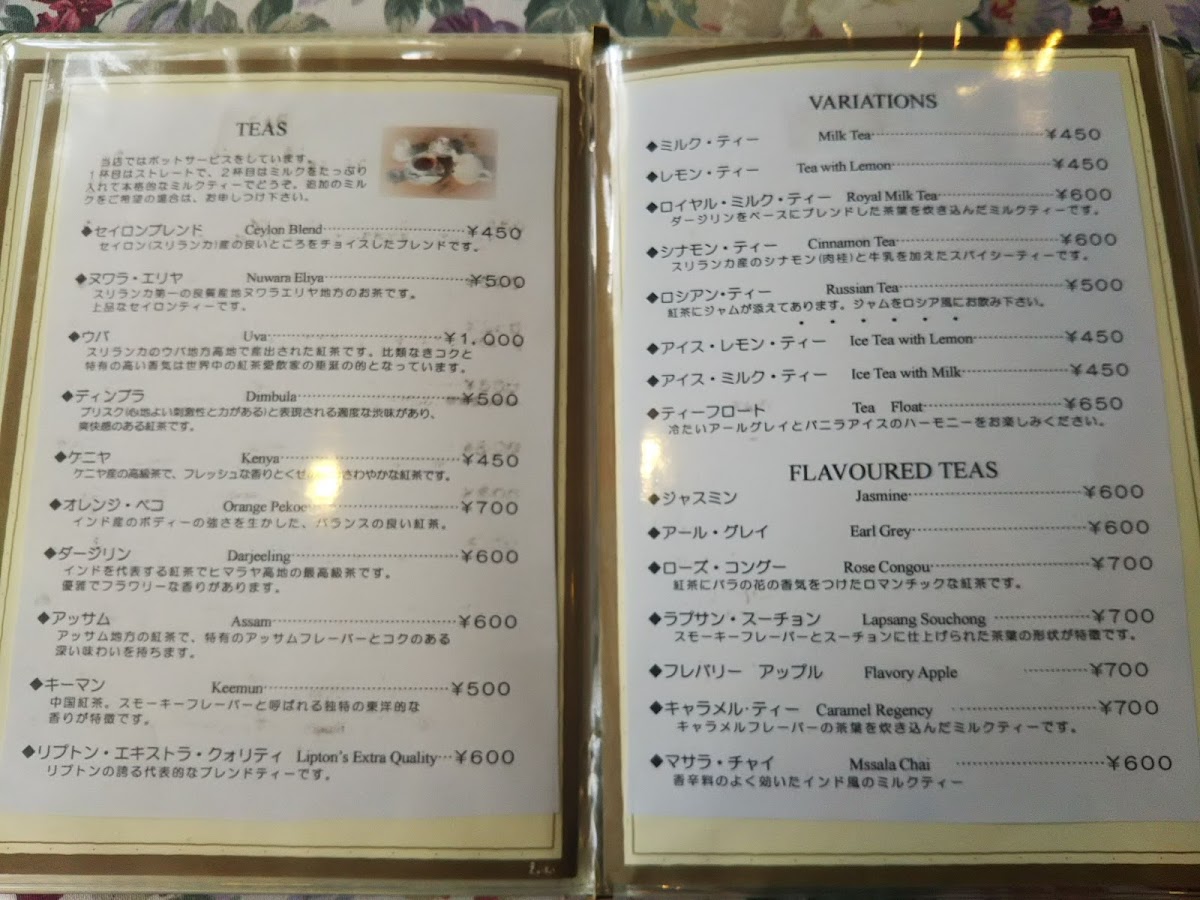 TEAS
当店ではポットサービスをしています。
1杯目はストレートで、2杯目はミルクをたっぷり
入れて本格的なミルクティーでどうぞ。追加のミル
クをご希望の場合は、お申しつけ下さい。
◆セイロンブレンド Ceylon Blend ¥450
セイロン(スリランカ)産の良いところをチョイスしたブレンドです。
◆ヌワラ・エリヤ Nuwara Eliya ¥500
スリランカ第一の良質産地ヌワラエリヤ地方のお茶です。
上品なセイロンティーです。
◆ウバ Uva ¥1,000
スリランカのウバ地方高地で産出された紅茶です。比類なきコクと
特有の高い香気は世界中の紅茶愛飲家の垂涎の的となっています。
◆ディンブラ Dimbula ¥500
ブリスク(心地よい刺激性と力がある)と表現される適度な渋味があり、
爽快感のある紅茶です。
◆ケニヤ Kenya ¥450
ケニヤ産の高級茶で、フレッシュな香りとくせ さわやかな紅茶です。
◆オレンジ・ペコ Orange Pekoe ¥700
インド産のボディーの強さを生かした、バランスの良い紅茶。
◆ダージリン Darjeeling ¥600
インドを代表する紅茶でヒマラヤ高地の最高級茶です。
優雅でフラワリーな香りがあります。
◆アッサム Assam ¥600
アッサム地方の紅茶で、特有のアッサムフレーバーとコクのある
深い味わいを持ちます。
◆キーマン Keemun ¥500
中国紅茶。スモーキーフレーバーと呼ばれる独特の東洋的な
香りが特徴です。
◆リプトン・エキストラ・クォリティ Lipton's Extra Quality ¥600
リプトンの誇る代表的なブレンドティーです。
VARIATIONS
◆ミルク・ティー Milk Tea ¥450
◆レモン・ティー Tea with Lemon ¥450
◆ロイヤル・ミルク・ティー Royal Milk Tea ¥600
ダージリンをベースにブレンドした茶葉を炊き込んだミルクティーです。
◆シナモン・ティー Cinnamon Tea ¥600
スリランカ産のシナモン(肉桂)と牛乳を加えたスパイシーティーです。
◆ロシアン・ティー Russian Tea ¥500
紅茶にジャムが添えてあります。ジャムをロシア風にお飲み下さい。
◆アイス・レモン・ティー Ice Tea with Lemon ¥450
◆アイス・ミルク・ティー Ice Tea with Milk ¥450
◆ティーフロート Tea Float ¥650
冷たいアールグレイとバニラアイスのハーモニーをお楽しみください。
FLAVOURED TEAS
◆ジャスミン Jasmine ¥600
◆アール・グレイ Earl Grey ¥600
◆ローズ・コングー Rose Congou ¥700
紅茶にバラの花の香気をつけたロマンチックな紅茶です。
◆ラプサン・スーチョン Lapsang Souchong ¥700
スモーキーフレーバーとスーチョンに仕上げられた茶葉の形状が特徴です。
◆フレバリー アップル Flavory Apple ¥700
◆キャラメル・ティー Caramel Regency ¥700
キャラメルフレーバーの茶葉を炊き込んだミルクティーです。
◆マサラ・チャイ Mssala Chai ¥600
香辛料のよく効いたインド風のミルクティー